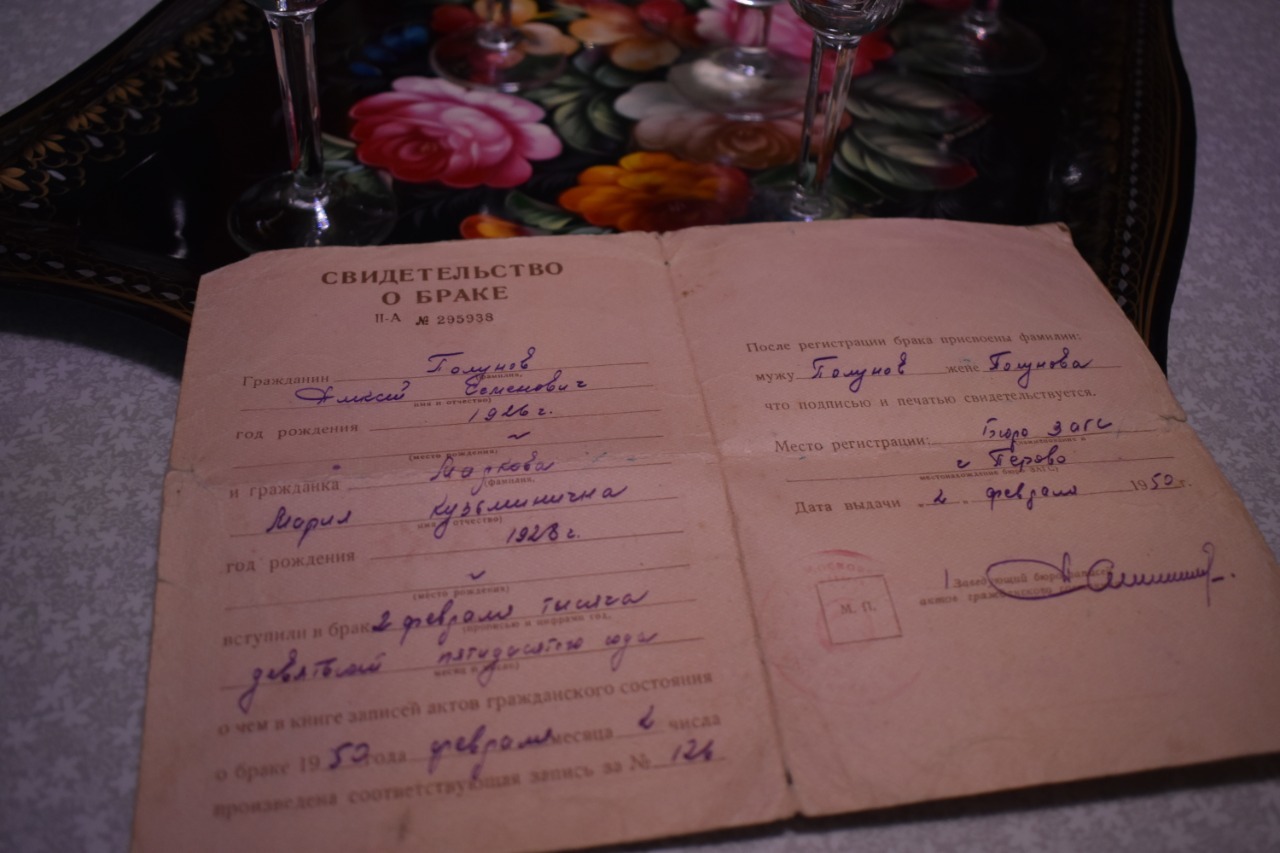 СВИДЕТЕЛЬСТВО
О БРАКЕ
II-А № 295938
Гражданин Полунов
(фамилия,
Алексей Семенович
имя и отчество)
год рождения 1926 г.
(место рождения)
и гражданка Маркова
(фамилия,
Мария Кузьминична
имя отчество)
год рождения 1928 г.
(место рождения)
вступили в брак 2 февраля тысяча
(прописью и цифрами год,
девятьсот пятидесятого года
месяц и число)
о чем в книге записей актов гражданского состояния
о браке 1950 года февраля месяца 2 числа
произведена соответствующая запись за №
После регистрации брака присвоены фамилии:
мужу Полунов жене Полунова
что подписью и печатью свидетельствуется.
Место регистрации: Бюро ЗАГС
г Перово
местонахождение бюро ЗАГСа)
Дата выдачи „2„ февраля 1950 г.
Заведующий бюро
актов гражданского
М. П.